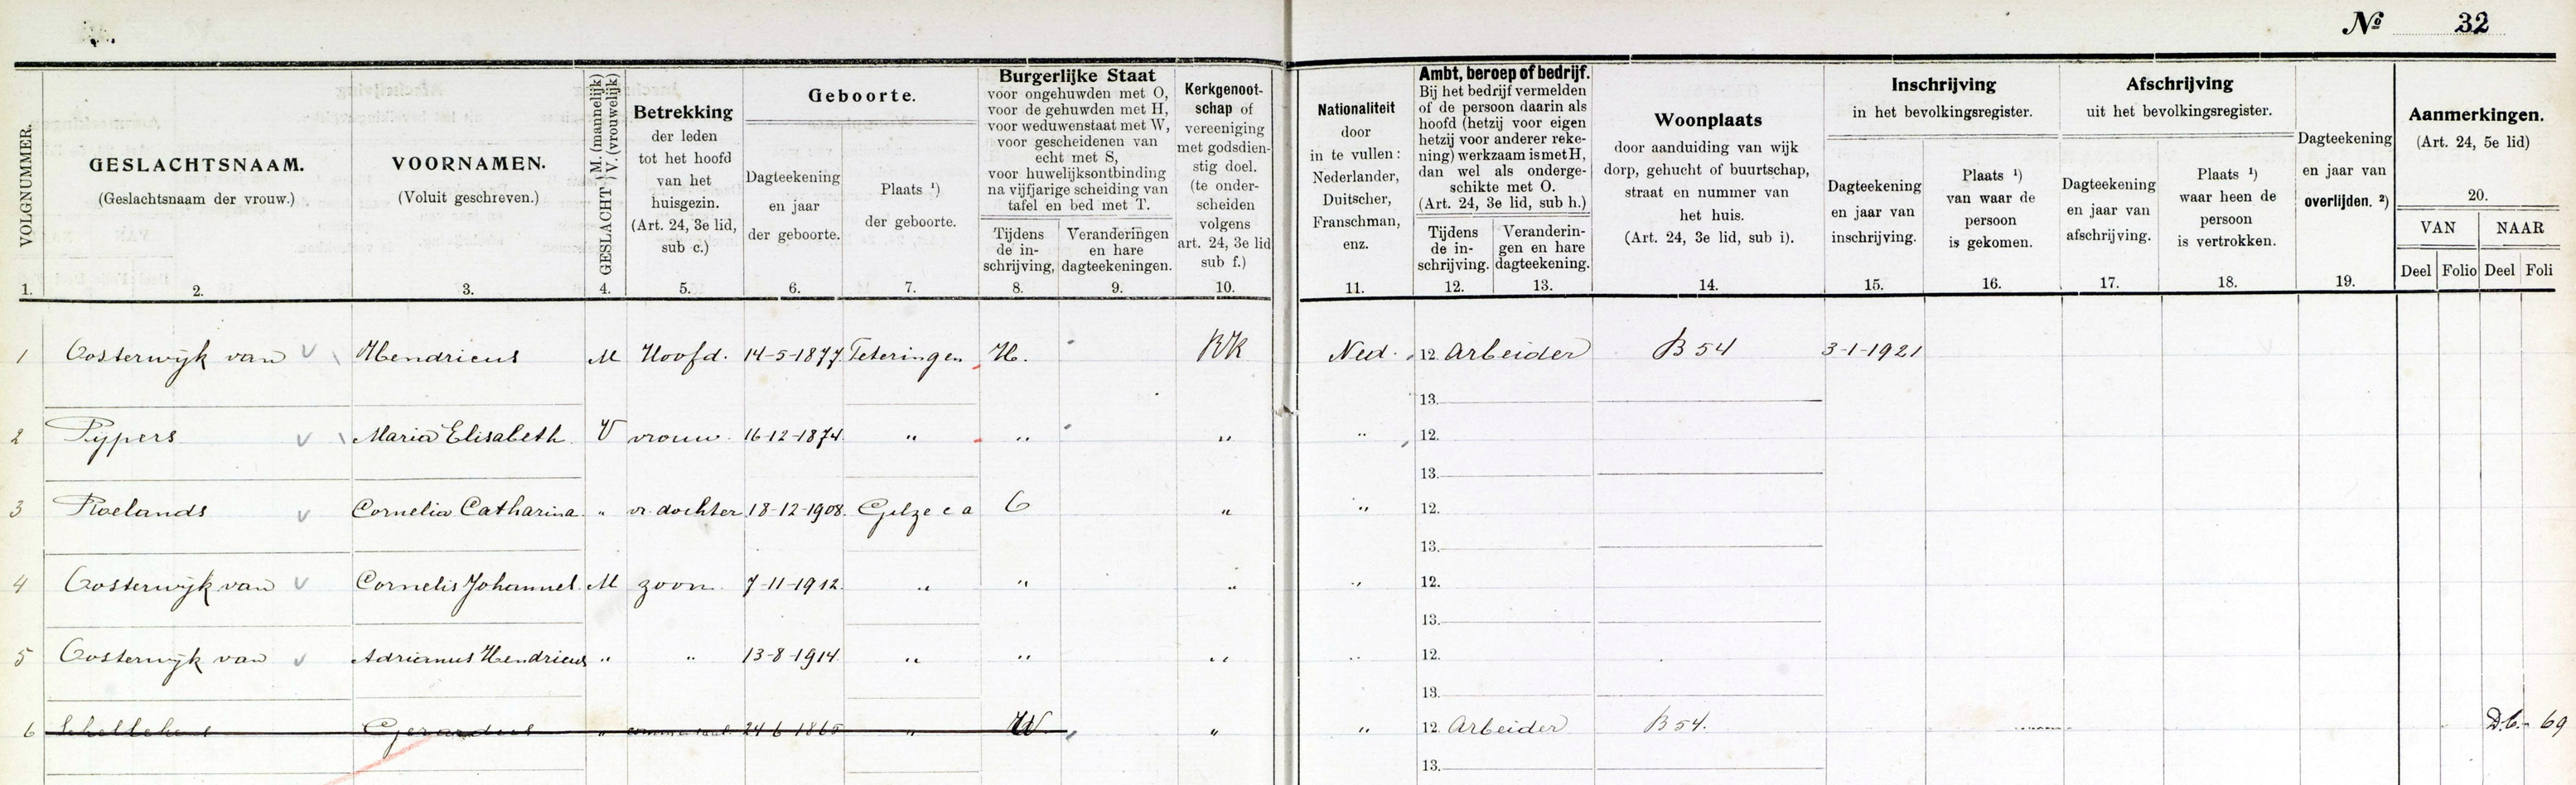 Nº 32
VOLGNUMMER.
1.
GESLACHTSNAAM.
(Geslachtsnaam der vrouw.)
2.
VOORNAMEN.
(Voluit geschreven.)
3.
GESLACHT M. (mannelijk) V. (vrouwelijk)
4.
Betrekking
der leden
tot het hoofd
van het
huisgezin.
(Art. 24, 3e lid,
sub c.)
5.
Geboorte.
Dagteekening
en jaar
der geboorte.
6.
Plaats ¹)
der geboorte.
7.
Burgerlijke Staat
voor ongehuwden met O,
voor de gehuwden met H,
voor weduwenstaat met W,
voor gescheidenen van
echt met S,
voor huwelijksontbinding
na vijfjarige scheiding van
tafel en bed met T.
Tijdens
de in-
schrijving,
8.
Veranderingen
en hare
dagteekeningen.
9.
Kerkgenoot-
schap of
vereeniging
met godsdien-
stig doel.
(te onder-
scheiden
volgens
art. 24, 3e lid
sub f.)
10.
Nationaliteit
door
in te vullen:
Nederlander,
Duitscher,
Franschman,
enz.
11.
Ambt, beroep of bedrijf.
Bij het bedrijf vermelden
of de persoon daarin als
hoofd (hetzij voor eigen
hetzij voor anderer reke-
ning) werkzaam is met H,
dan wel als onderge-
schikte met O.
(Art. 24, 3e lid, sub h.)
Tijdens
de in-
schrijving.
12.
Veranderin-
gen en hare
dagteekening.
13.
Woonplaats
door aanduiding van wijk
dorp, gehucht of buurtschap,
straat en nummer van
het huis.
(Art. 24, 3e lid, sub i).
14.
Inschrijving
in het bevolkingsregister.
Dagteekening
en jaar van
inschrijving.
15.
Plaats ¹)
van waar de
persoon
is gekomen.
16.
Afschrijving
uit het bevolkingsregister.
Dagteekening
en jaar van
afschrijving.
17.
Plaats ¹)
waar heen de
persoon
is vertrokken.
18.
Dagteekening
en jaar van
overlijden. ²)
19.
Aanmerkingen.
(Art. 24, 5e lid)
20.
VAN NAAR
Deel Folio Deel Foli
1 Oosterwijk van Hendricus M Hoofd. 14-5-1877 Teteringen H. RK Ned. 12. Arbeider B 54 3-1-1921
13.
2 Pijpers Maria Elisabeth V vrouw. 16-12-1874. " " " " 12.
13.
3 Roelands Cornelia Catharina. " vr. dochter 18-12-1908. Gilze c a O " " 12.
13.
4 Oosterwijk van Cornelis Johannes. M zoon. 7-11-1912. " " " " 12.
13.
5 Oosterwijk van Adrianus Hendricus " " 13-8-1914 " " " " 12.
13.
6 Schellekens Gerardus " 24-6-1865 " W. " " 12. Arbeider B 54. 69
13.